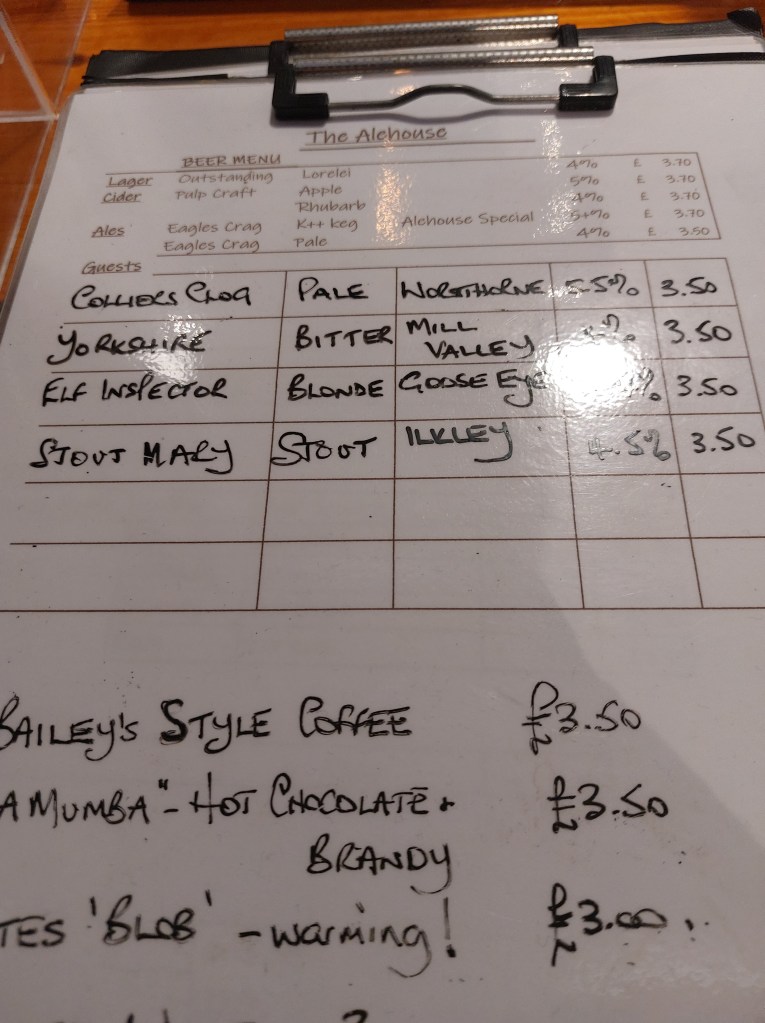 The Alehouse
BEER MENU
Lager Outstanding Lorelei 4% £ 3.70
Cider Pulp Craft Apple 5% £ 3.70
Rhubarb 4% £ 3.70
Ales Eagles Crag K++ keg Alehouse Special 5+% £ 3.70
Eagles Crag Pale 4% £ 3.50
Guests
COLLIERS CLOG PALE WORSTHORNE 5.5% 3.50
YORKSHIRE BITTER MILL VALLEY % 3.50
ELF INSPECTOR BLONDE GOOSE EYE % 3.50
STOUT MARY STOUT ILKLEY 4.5% 3.50
BAILEY'S STYLE COFFEE £3.50
A MUMBA" - HOT CHOCOLATE + £3.50
BRANDY
TES 'BLOB' - warming! £3.00.